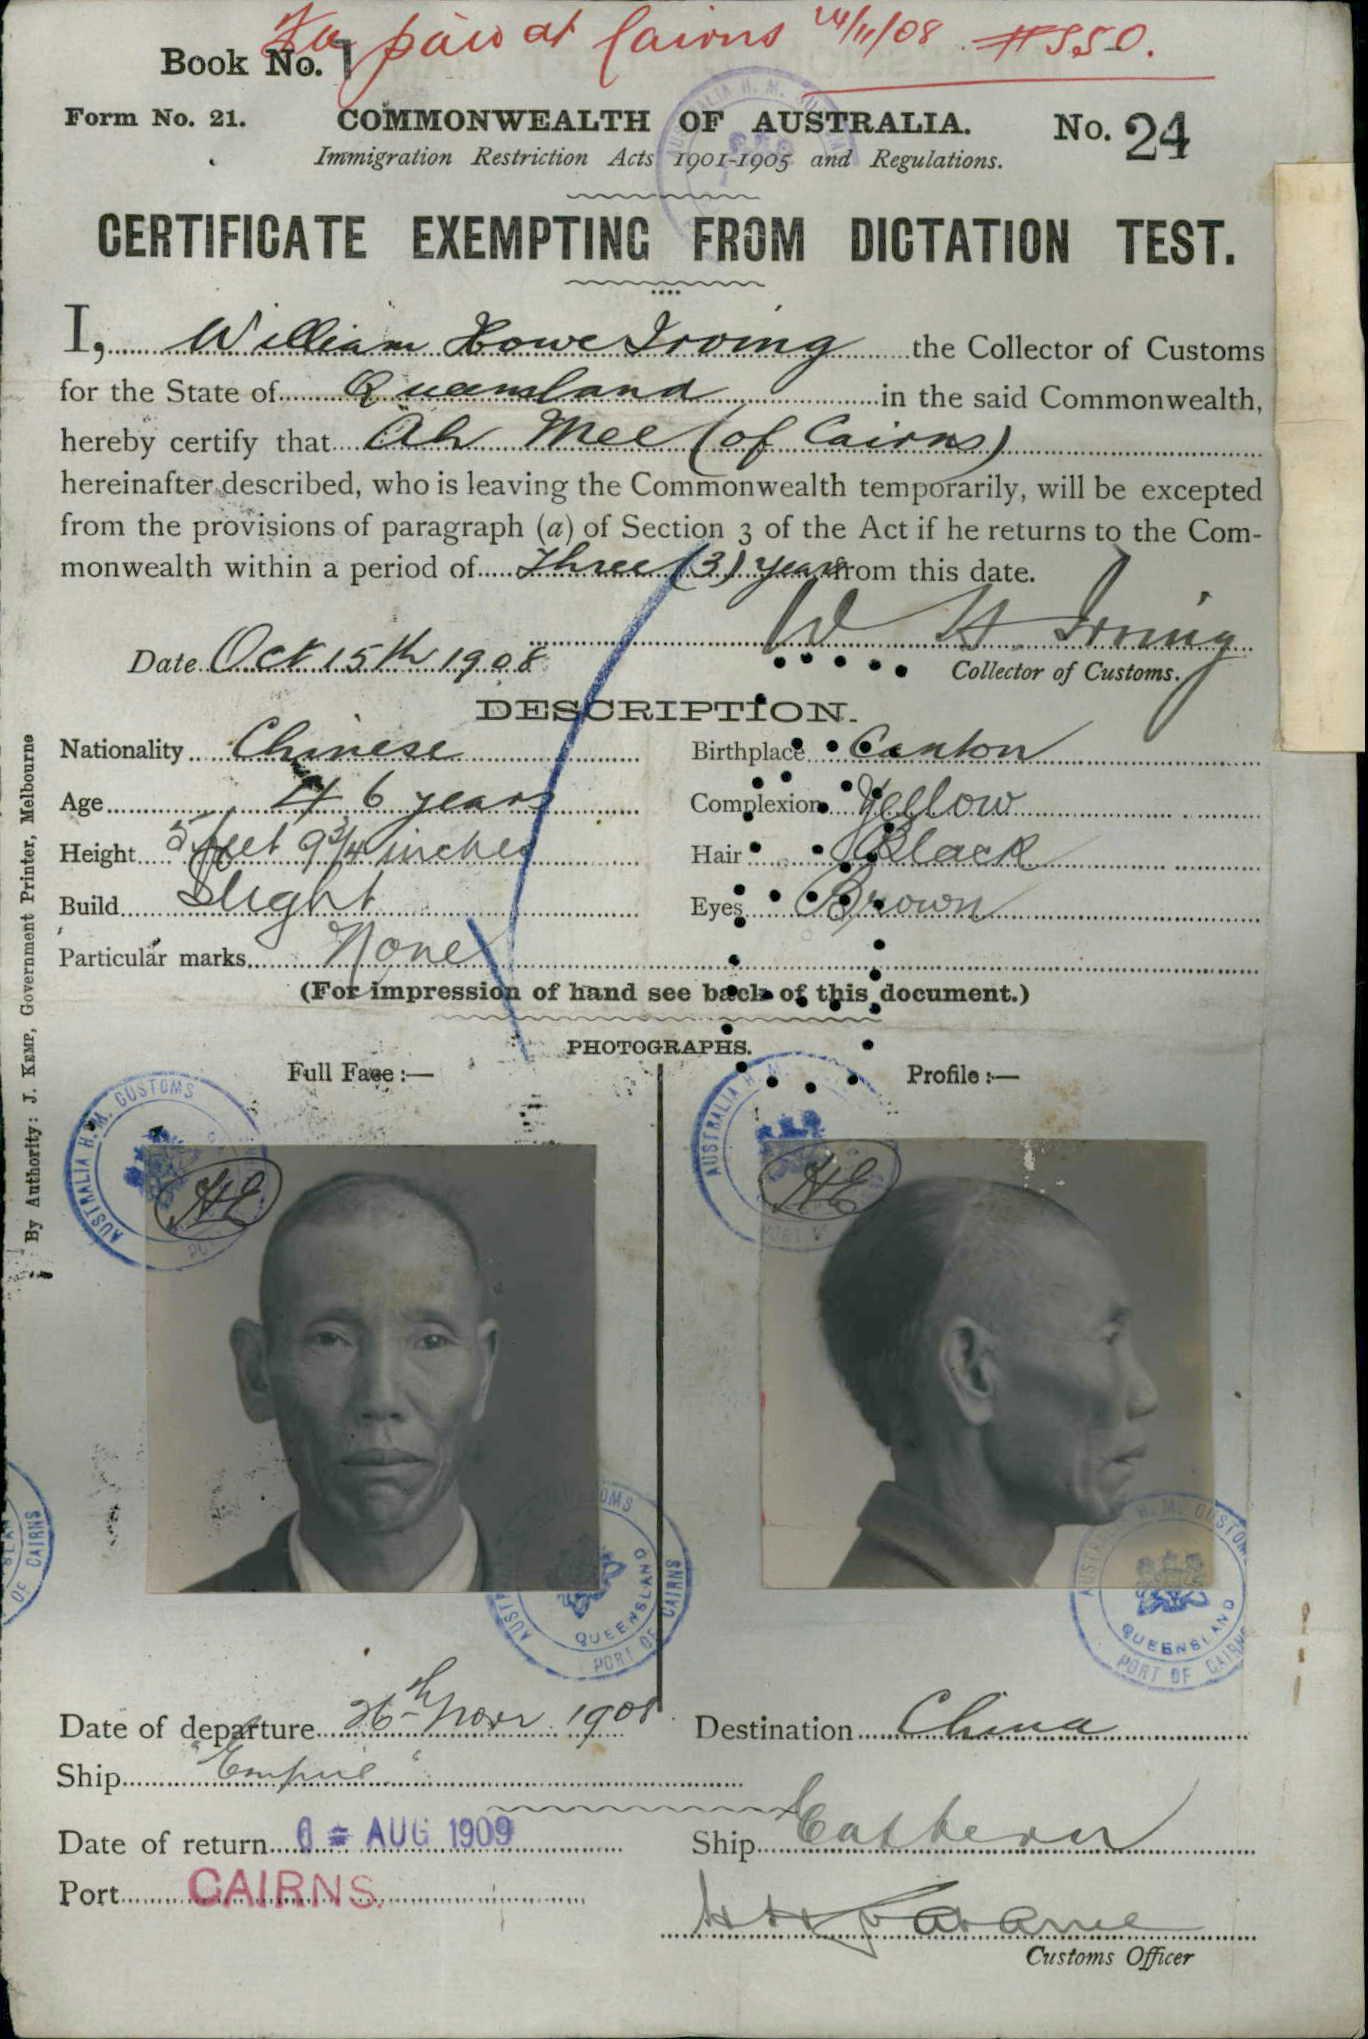 Fee paid at Cairns 24/11/08 #550.
Book No. 1
Form No. 21. COMMONWEALTH OF AUSTRALIA. No. 24
Immigration Restriction Acts 1901-1905 and Regulations.
CERTIFICATE EXEMPTING FROM DICTATION TEST.
I, William Howe Irving the Collector of Customs
for the State of Queensland in the said Commonwealth,
hereby certify that Ah Mee (of Cairns)
hereinafter described, who is leaving the Commonwealth temporarily, will be excepted
from the provisions of paragraph (a) of Section 3 of the Act if he returns to the Com-
monwealth within a period of Three (3) years from this date.
W H Irving
Date Oct 15th 1908 Collector of Customs.
DESCRIPTION.
Nationality Chinese Birthplace Canton
Age 46 years Complexion Yellow
Height 5 feet 9 3/4 inches Hair Black
Build Slight Eyes Brown
Particular marks None
(For impression of hand see back of this document.)
PHOTOGRAPHS.
Full Face :— Profile :—
AUSTRALIA H. M. CUSTOMS
AUSTRALIA H. M.
HE
HE
QUEENSLAND
PORT OF CAIRNS
QUEENSLAND
PORT OF CAIRNS
OF CAIRNS
Date of departure 26th Novr 1908 Destination China
Ship "Empire"
Date of return 6 = AUG 1909 Ship Eastern
Port CAIRNS.
Customs Officer
By Authority: J. KEMP, Government Printer, Melbourne